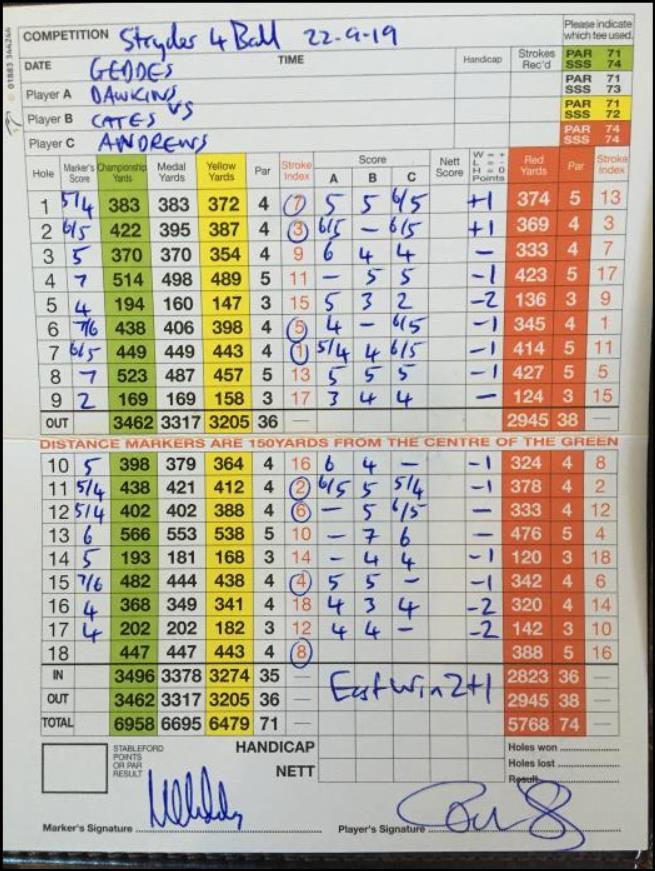 01883 344244
COMPETITION Stryder 4 Ball 22-9-19
Please indicate which tee used.
DATE GEDDES TIME Handicap Strokes Rec'd PAR 71 SSS 74
Player A DAWKINS PAR 71 SSS 73
VS
Player B CATES PAR 71 SSS 72
Player C ANDREWS PAR 74 SSS 74
Hole Marker's Score Championship Yards Medal Yards Yellow Yards Par Stroke Index Score A B C Nett Score W = + L = - H = 0 Points Red Yards Par Stroke Index
1 5/4 383 383 372 4 7 5 5 6/5 +1 374 5 13
2 6/5 422 395 387 4 3 6/5 - 6/5 +1 369 4 3
3 5 370 370 354 4 9 6 4 4 - 333 4 7
4 7 514 498 489 5 11 - 5 5 -1 423 5 17
5 4 194 160 147 3 15 5 3 2 -2 136 3 9
6 7/6 438 406 398 4 5 4 - 6/5 -1 345 4 1
7 6/5 449 449 443 4 1 5/4 4 6/5 -1 414 5 11
8 7 523 487 457 5 13 5 5 5 -1 427 5 5
9 2 169 169 158 3 17 3 4 4 - 124 3 15
OUT 3462 3317 3205 36 — 2945 38 —
DISTANCE MARKERS ARE 150YARDS FROM THE CENTRE OF THE GREEN
10 5 398 379 364 4 16 6 4 - -1 324 4 8
11 5/4 438 421 412 4 2 6/5 5 5/4 -1 378 4 2
12 5/4 402 402 388 4 6 - 5 6/5 - 333 4 12
13 6 566 553 538 5 10 - 7 6 - 476 5 4
14 5 193 181 168 3 14 - 4 4 -1 120 3 18
15 7/6 482 444 438 4 4 5 5 - -1 342 4 6
16 4 368 349 341 4 18 4 3 4 -2 320 4 14
17 4 202 202 182 3 12 4 4 - -2 142 3 10
18 447 447 443 4 8 388 5 16
IN 3496 3378 3274 35 — East Win 2+1 2823 36 —
OUT 3462 3317 3205 36 — 2945 38 —
TOTAL 6958 6695 6479 71 — 5768 74 —
STABLEFORD POINTS OR PAR RESULT
HANDICAP
NETT
Holes won
Holes lost
Result
Marker's Signature Player's Signature